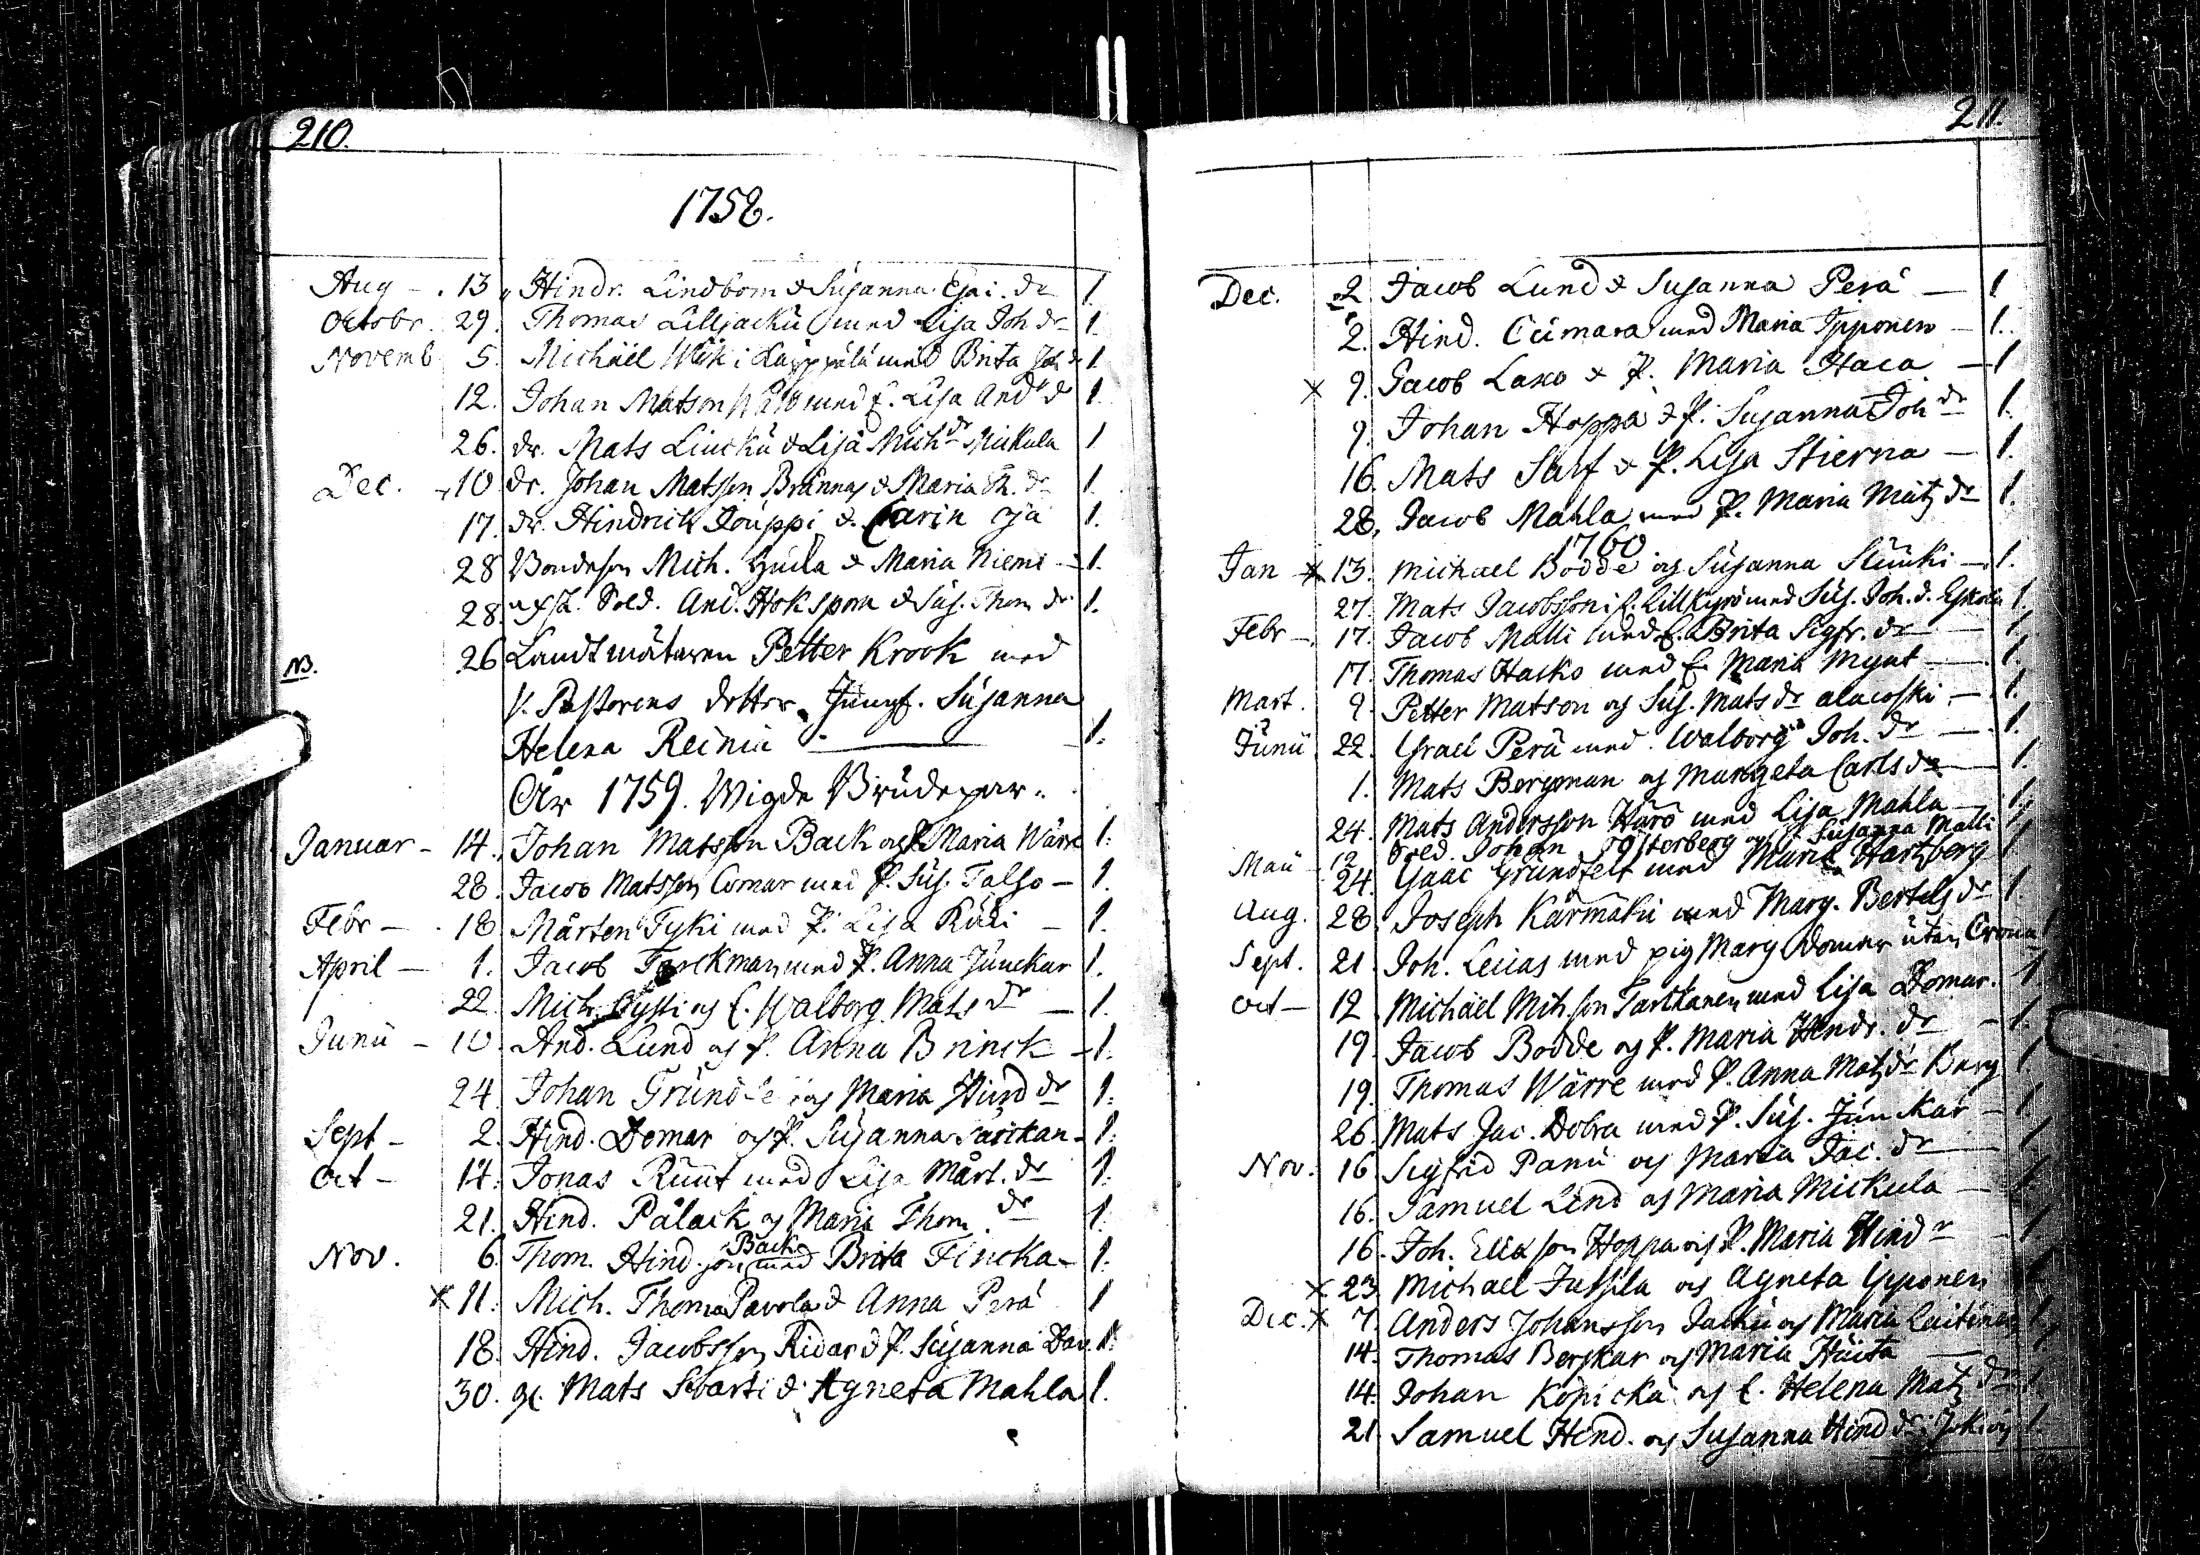 210.
1758.
Aug - . 13 Hindr. Lindbom & Susanna Esai. dr 1
Octobr. 29. Thomas Lilljacku med Lisa Joh dr 1.
Novemb 5. Michäel Wik i Käppälä med Brita Joh dr 1
12. Johan Matson med E. Lisa And. dr 1.
26. dr. Mats Liucku & Lisa Mich dr Mickula 1
Dec. 10 dr. Johan Matsson Brännas & Maria Th. dr 1.
17. dr. Hindrick Louppi & Carin Oja 1.
28 Bondeson Mich. Hucla & Maria Niemi - 1.
28. afsk. Sold. And. Hoksporn & Sus. Thom dr. 1.
NB. 26 Landtmätaren Petter Krook med
V. Pastorens dotter Jungf. Susanna
Helena Reinia - 1.
År 1759. Wigde Brudepar.
Januar - 14. Johan Matsson Back och P. Maria Wärre 1.
28. Jacob Matsson Comar med P. Sus. Talso - 1.
Febr - . 18 Mårten Tyki med P. Lisa Kuki - 1.
April - 1. Jacob Farckman med P. Anna Junckar 1.
22. Mich. Öysti og E. Walborg Mats dr - 1.
Junii - 10. And. Lund og P. Anna Brinck - 1.
24. Johan Grund og Maria Hind dr 1.
Sept - 2. Hind. Domar og P. Susanna Tarckan - 1.
Oct - 14. Jonas Ruut med Lisa Mårt. dr 1.
21. Hind. Pålack og Maria Thom. dr 1.
Nov. 6. Thom. Hind. son Back med Brita Fincka - 1.
x 11. Mich. Thoma Pavola & Anna Perä 1
18. Hind. Jacobsson Ridar & P. Susanna Dav. 1.
30. gl. Mats Svarti & Agneta Mahla 1.
211.
Dec. 2 Jacob Lund & Susanna Perä - 1
2. Hind. Cumara med Maria Ypponen - 1.
x 9. Jacob Laxo & P. Maria Haca - 1
9. Johan Hoppa & P. Susanna Joh dr 1.
16. Mats Sarf & P. Lisa Stierna - 1.
28. Jacob Mahla med P. Maria Matz dr 1.
1760
Jan x 13. Michael Bodde og Susanna Sluuki - 1.
27. Mats Jacobsson i f. Lillkyro med Sus. Joh. d. Eskola 1.
Febr -. 17. Jacob Malli med E. Brita Sigfr. dr - 1.
17. Thomas Hasko med E. Maria Mynt - 1.
Mart. 9. Petter Matson og Sus. Mats dr alacoski - 1.
Junii 22. Israel Perä med Walborg Joh. dr - 1.
1. Mats Bergman og Margeta Carls dr - 1.
24. Mats Andersson Härö med Lisa Mahla - 1.
12 Sold. Johan Österberg og Susanna Malli 1
Maii - 24. Isaac Grundfelt med Maria Hartzberg 1
Aug. 28. Joseph Kärmäki med Marg. Bertels dr 1.
Sept. 21 Joh. Lucas med pig Marg Domar utan Crona 1
Oct - 12. Michäel Mich son Tarckanen med Lisa Domar. 1
19. Jacob Bodde og P. Maria Hindr. dr - 1.
19. Thomas Wärre med P. Anna Matz dr Barg 1.
26. Mats Jac. Dobra med P. Sus. Junckar - 1
Nov. 16 Sigfrid Panu og Maria Jac. dr - 1
16. Samuel Lind og Maria Mickula - 1
16. Joh. Elia son Hoppa og P. Maria Hind r - 1
x 23. Michael Jussila og Agneta Ypponen 1
Dec. x 7. Anders Johansson Jacku og Maria Laitinen 1
14. Thomas Berskar og Maria Huita - 1
14. Johan Kopicka og E. Helena Matz dr 1.
21. Samuel Hind. og Susanna Hind dr. 1.